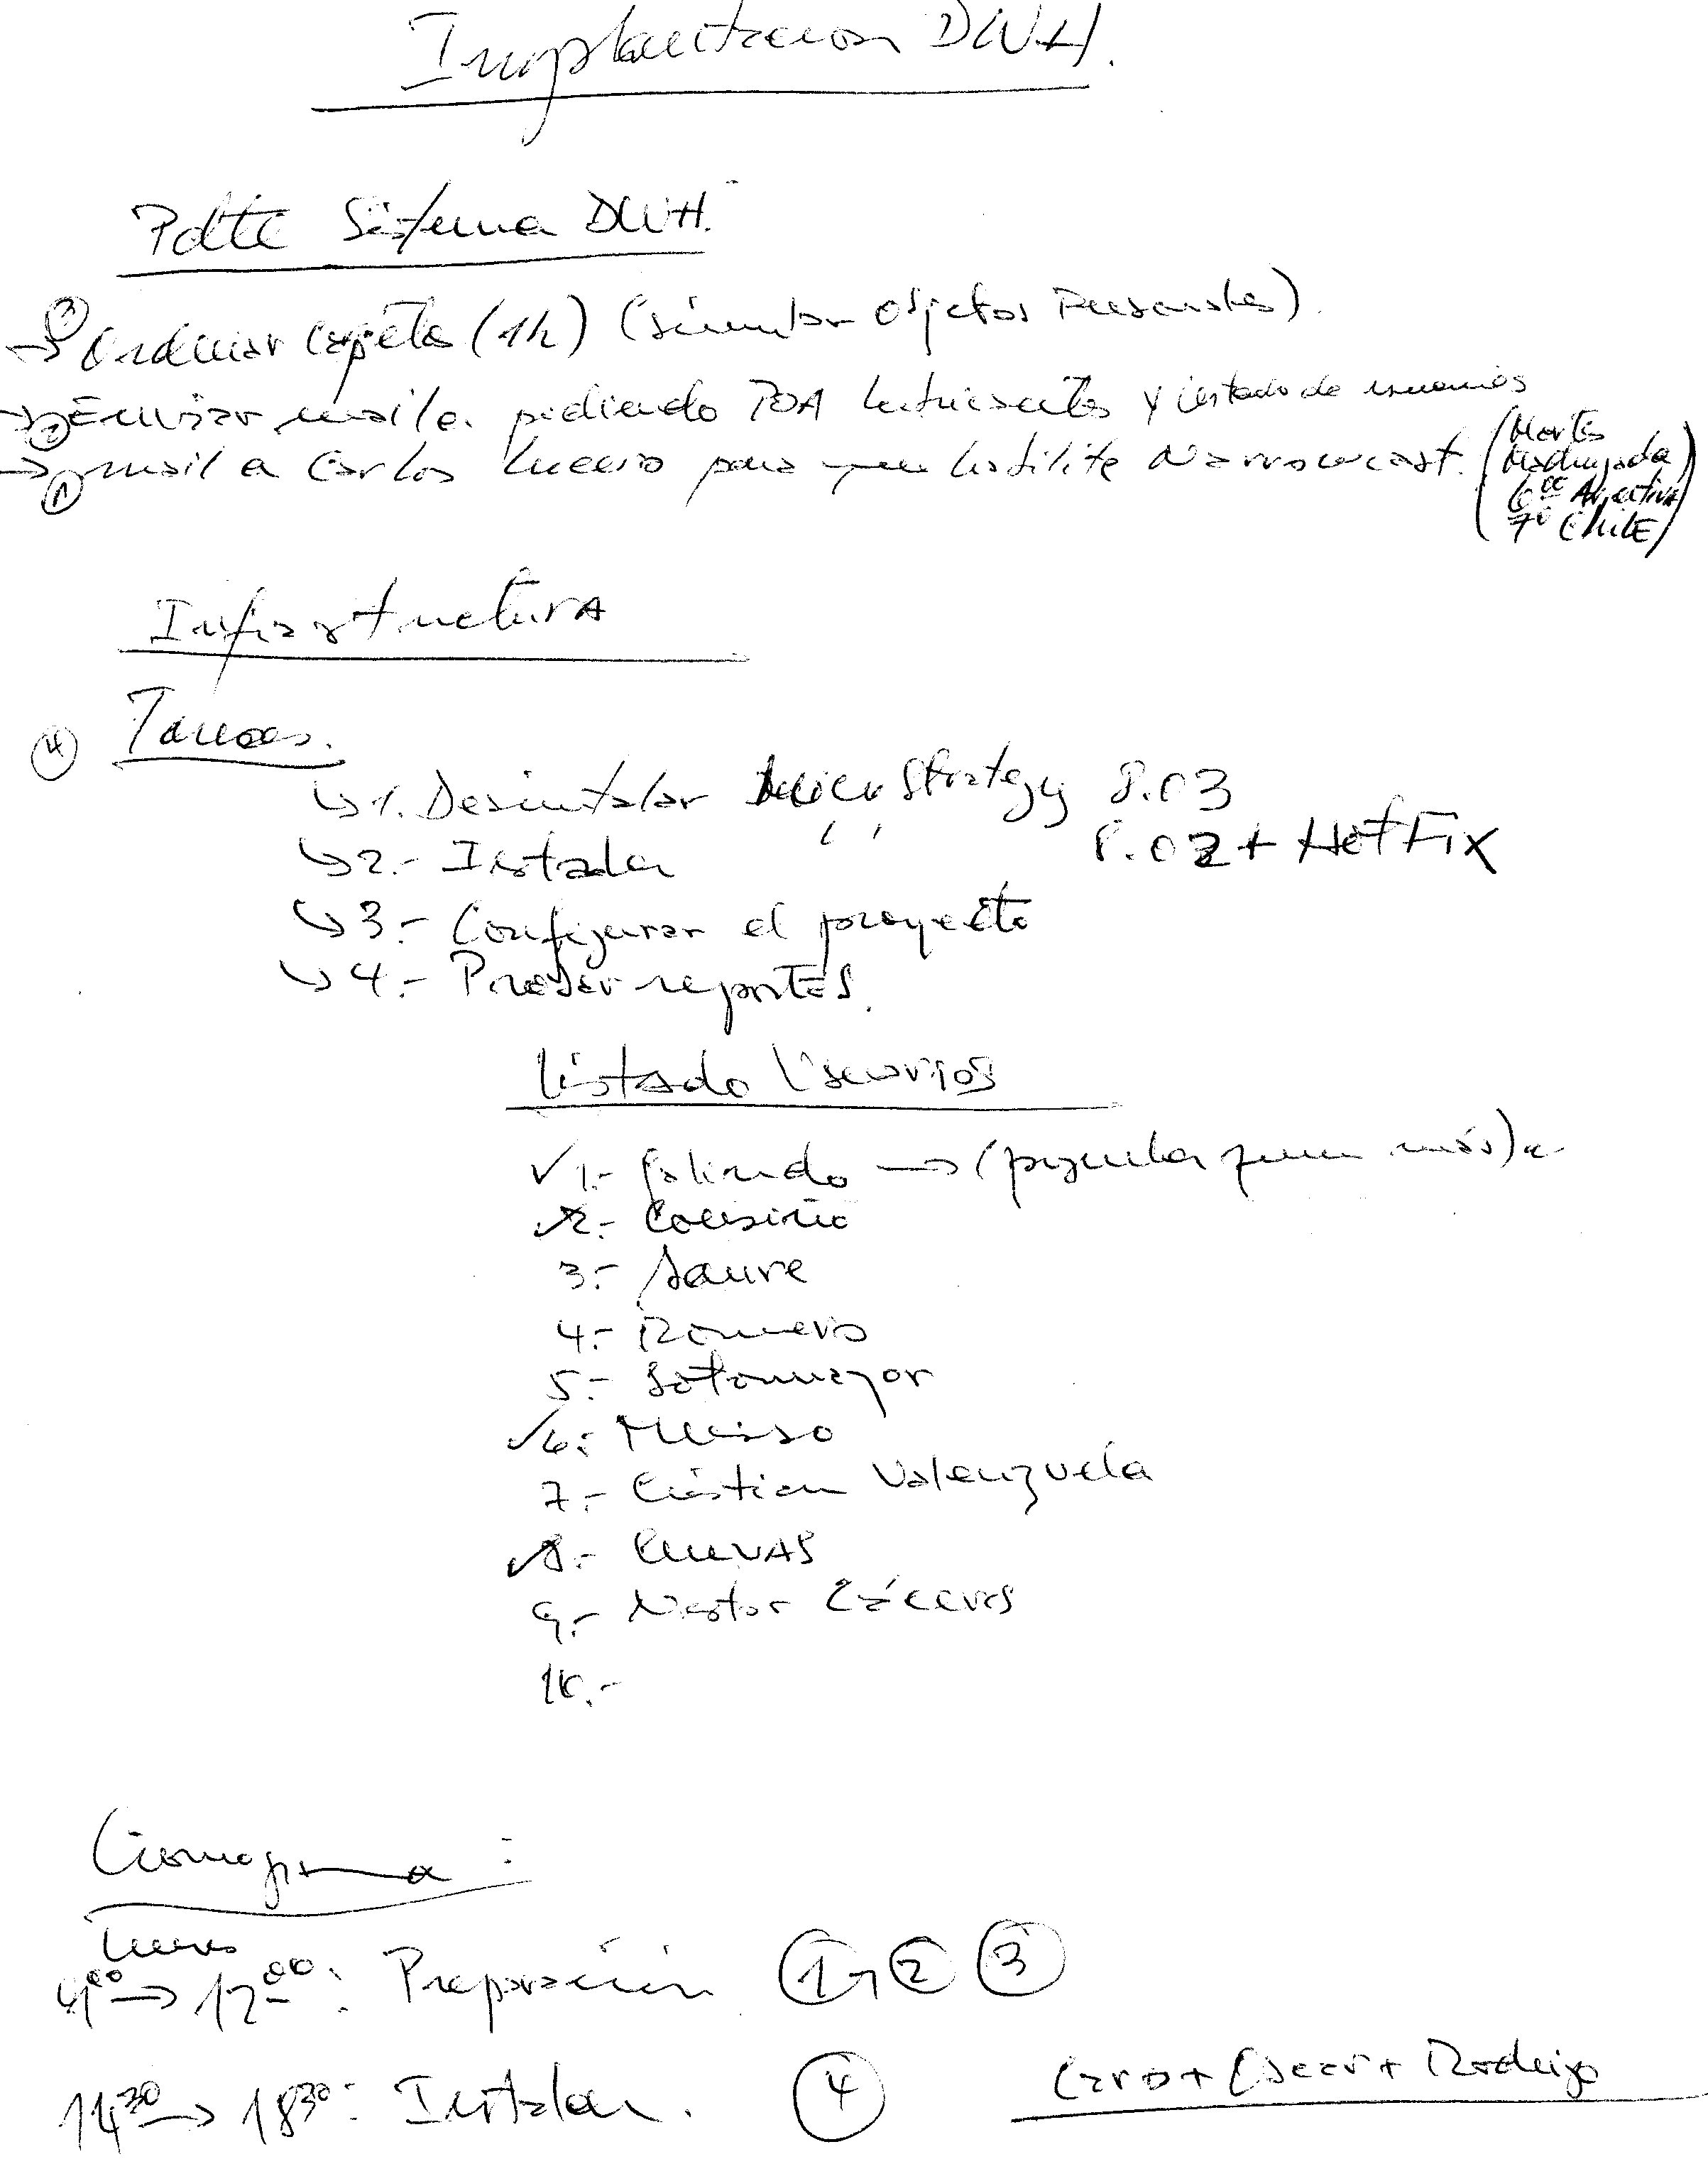 Implantacion DWH.
Pdte Sistema DWH.
→ ③ Ordenar carpeta (1h) (simular Objetos Personales).
→ ② Enviar mail a pidiendo PDA y listado de usuarios
→ ① mail a Carlos para que habilite Narrowcast. (Martes
Madrugada
6°° Argentina
7° Chile)
Infraestructura
④ Tareas.
↳ 1. Desinstalar MicroStrategy 8.03
↳ 2.- Instalar ' ' 8.02 + HotFix
↳ 3.- Configurar el proyecto
↳ 4.- Probar reportes.
Listado Usuarios
✓ 1.- Galindo → (preguntar quien más)
✓ 2.- Cousiño
3.- Saure
4.- Romero
5.- Sotomayor
✓ 6.-
7.- Cristian Valenzuela
✓ 8.- Cuevas
9.- Nestor Cáceres
10.-
Cronograma :
Lunes
9°° → 12°°: Preparación ① ② ③
14³⁰ → 18³⁰: Instalar. ④ Caro + Oscar + Rodrigo